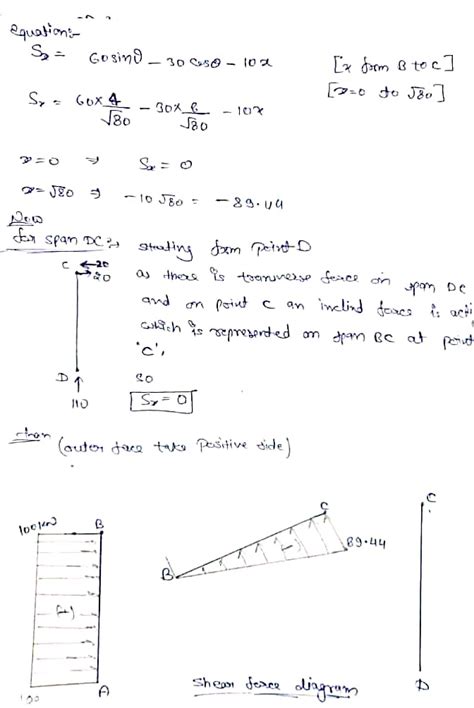 equations:-
Sx = 60sinθ - 30cosθ - 10x [x from B to C]
Sx = 60×4/√80 - 30×8/√80 - 10x [x=0 to √80]
x=0 ⇒ Sx = 0
x=√80 ⇒ -10√80 = -89.44
Now
for span DC:- starting from point D
C ←20
→20
as there is tranverse force on span DC
and on point C an inclind force is acti
which is represented on span BC at point
'C',
D ↑ so
110 Sx = 0
then (outer face take positive side)
100kN B
C
C
89.44
B
(+)
(-)
100 A
D
Shear force diagram